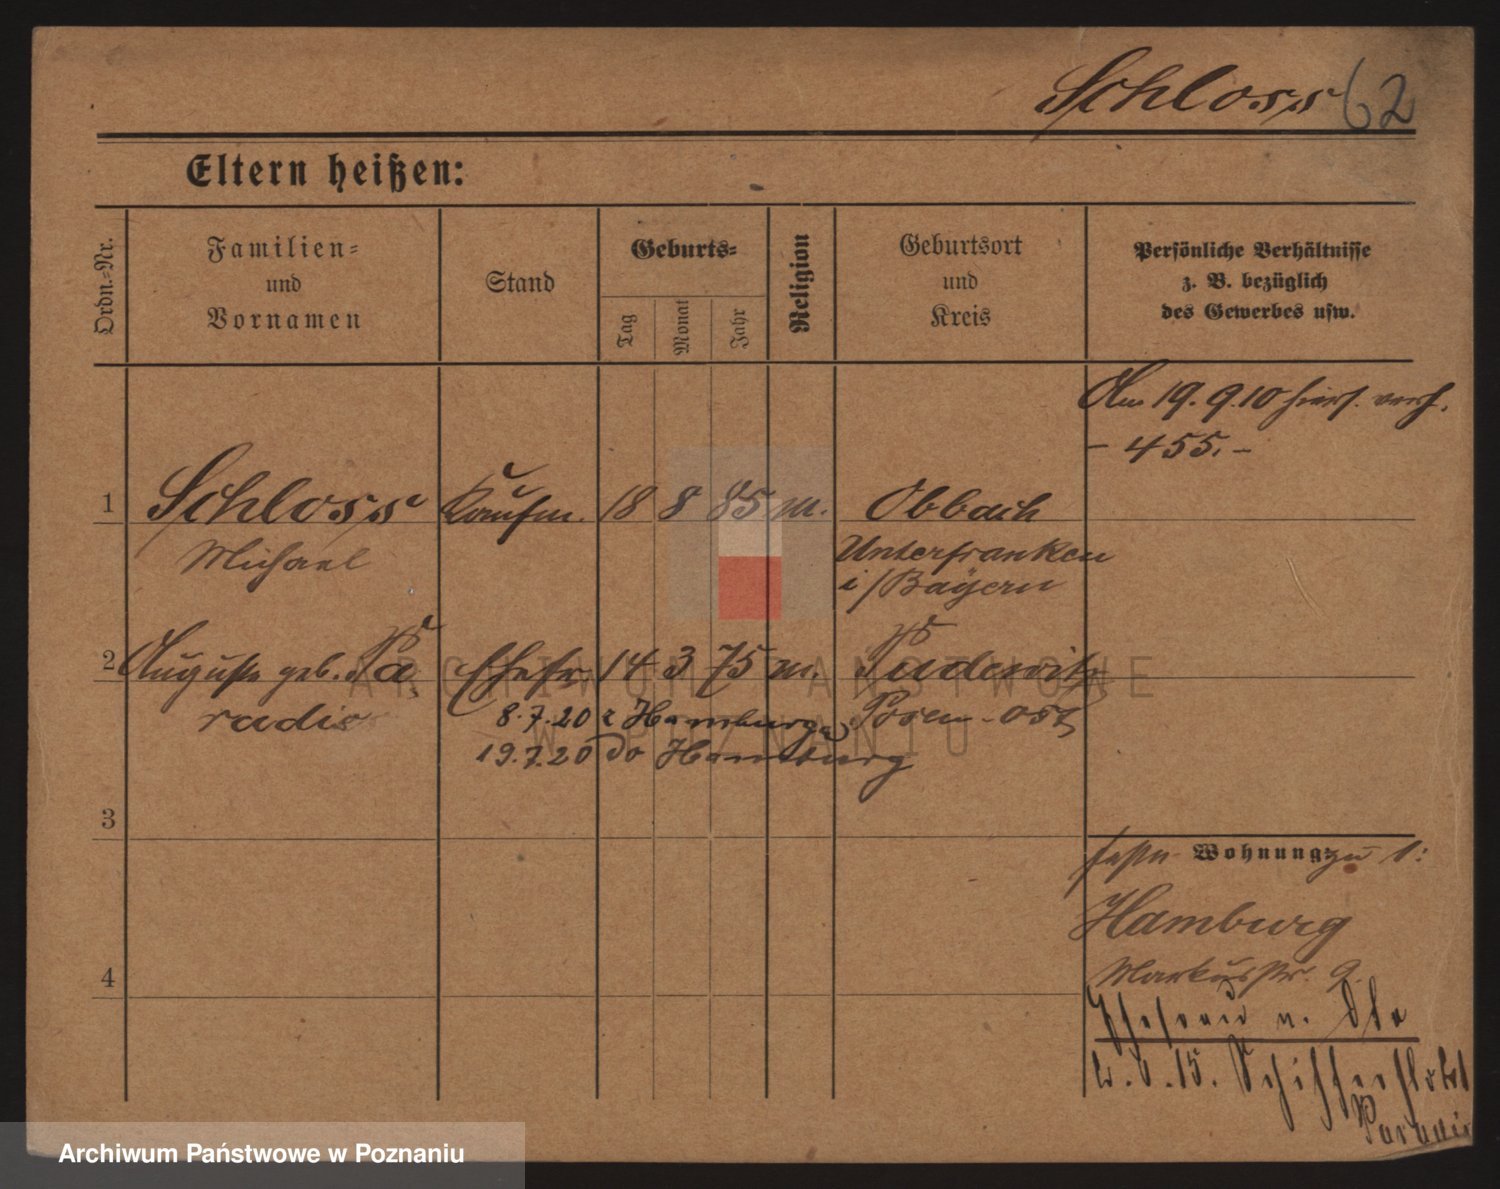 Schloss 62
Eltern heißen:
Ordn.-Nr.
Familien-
und
Vornamen
Stand
Geburts-
Tag
Monat
Jahr
Religion
Geburtsort
und
Kreis
Persönliche Verhältnisse
z. B. bezüglich
des Gewerbes usw.
Am 19. 9. 10 verh.
- 455. -
1 Schloss Kaufm. 18 8 85 m. Obbach
Michael Unterfranken
i/Bayern
2 Auguste geb. Pa Ehefr. 14 3 75 m. Pudewitz
radies Posen-Ost
8.7.20 z Hamburga
19.7.20 do Hamburg
3
Wohnung zu 1:
Hamburg
Markusstr. 9.
4
Ehefrau u.
15.
Paradi
ARCHIWUM PAŃSTWOWE
W POZNANIU
Archiwum Państwowe w Poznaniu